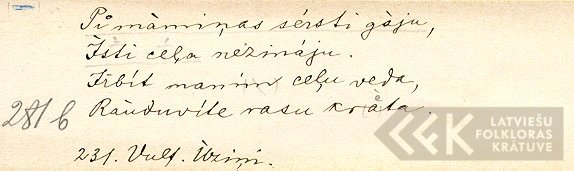 Pi māmiņas sērsti gāju,
Īsti ceļa nezināju.
Irbīt manim ceļu veda,
Rauduvīte rasu krāta.
281 6
231. Vulf. Ūziņi.
LATVIEŠU
FOLKLORAS
KRĀTUVE